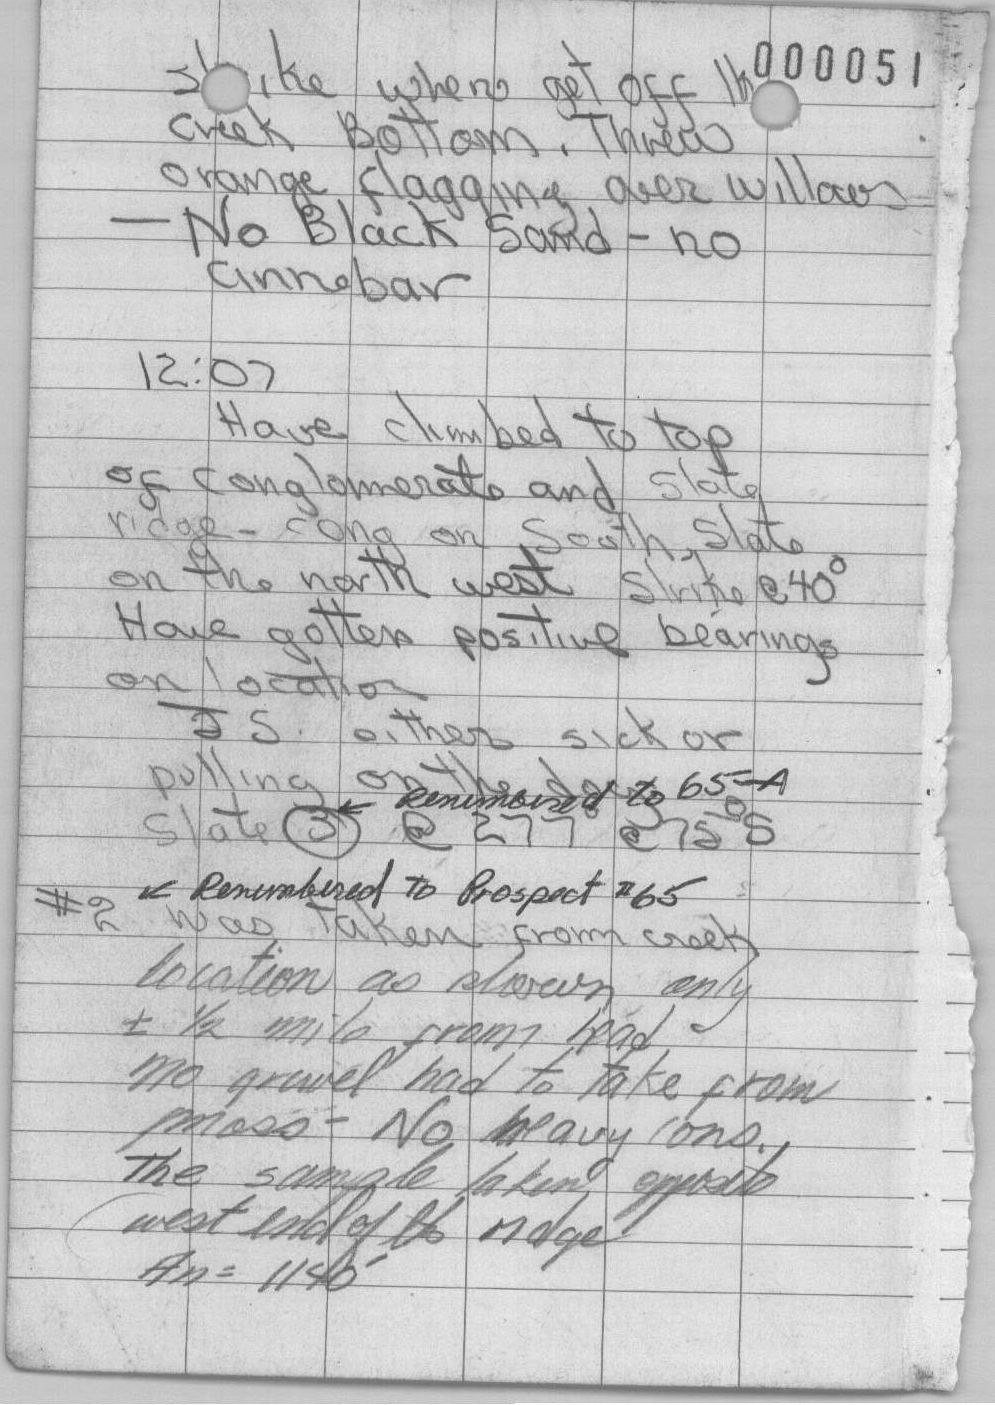 000051
strike where get off the
creek Bottom. Threw
orange flagging over willows
— No Black Sand - no
cinnebar
12:07
Have climbed to top
of conglomerate and slate
ridge - cong on South, Slate
on the north west strike @ 40°
Have gotten positive bearings
on location
J S. either sick or
pulling on the
← Renumbered to 65-A
Slate (3) @ 277° @ 75° S
← Renumbered to Prospect #65
#2 was taken from creek
location as shown only
± 1/2 mile from head
no gravel had to take from
moss - No heavy cons.
The sample taken opposite
west end of the ridge
An = 1140'